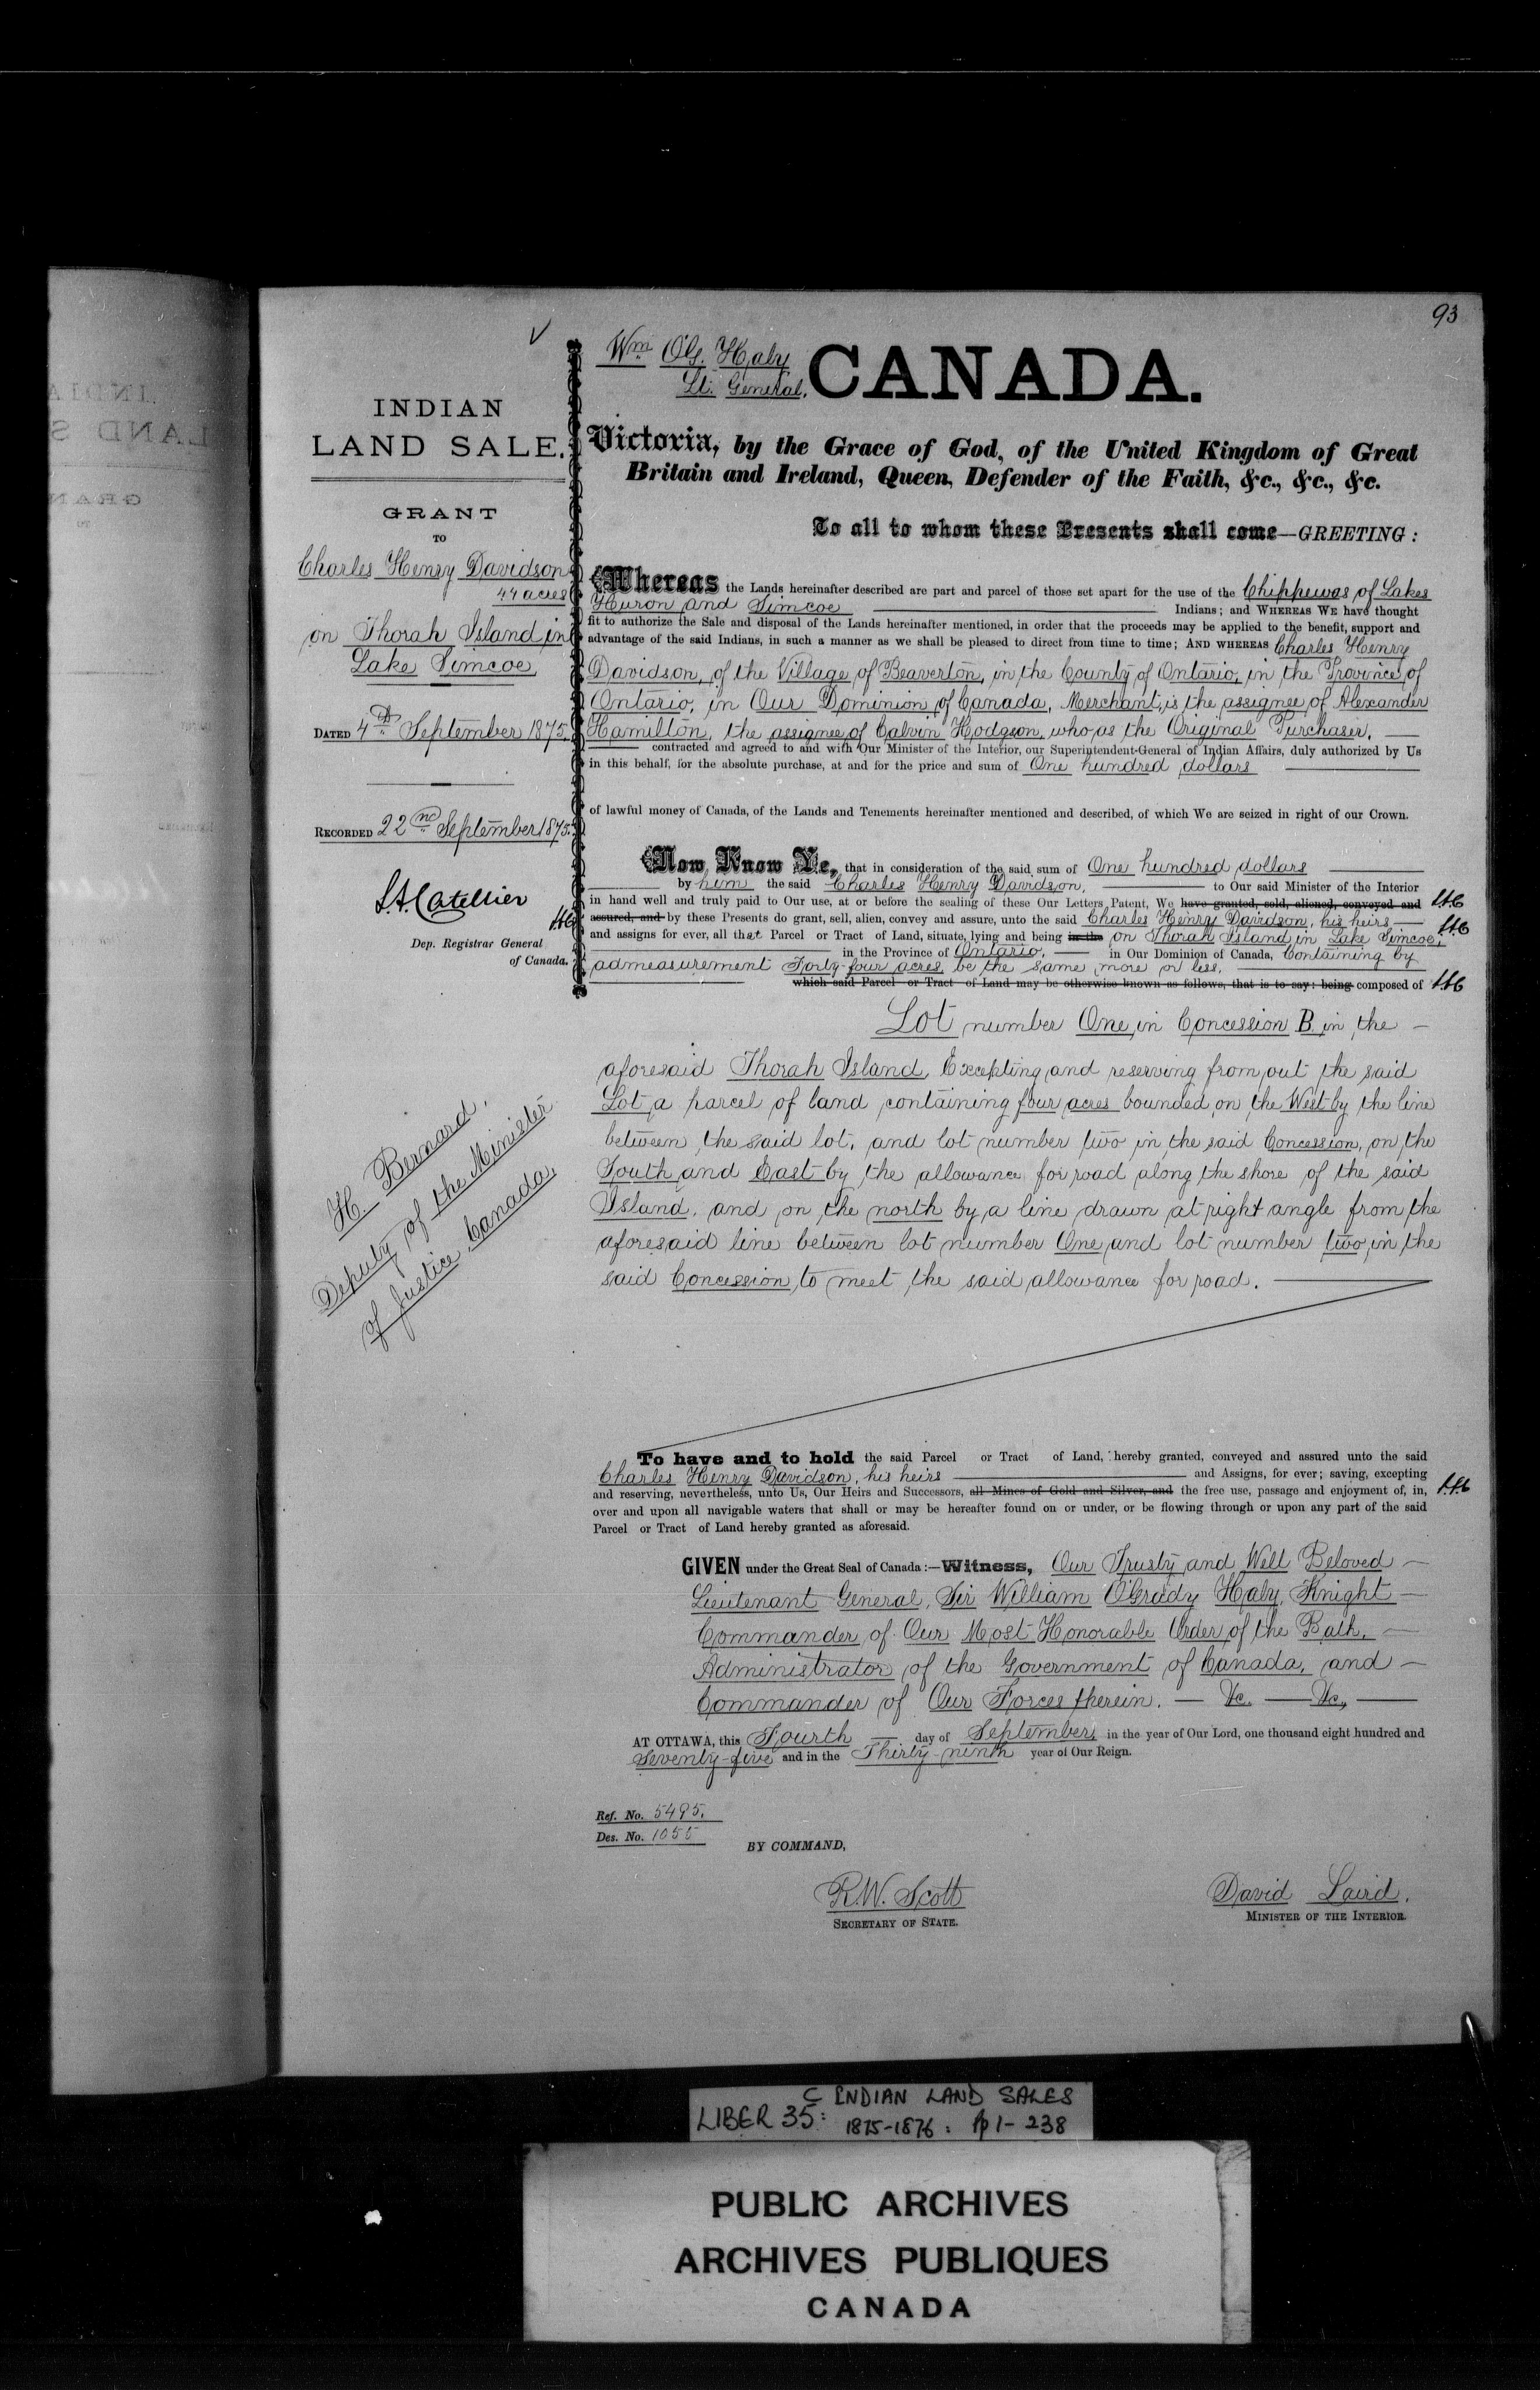 93
Wm O'G. Haly
Lt. General.
CANADA.
INDIAN
LAND SALE.
GRANT
TO
Charles Henry Davidson
44 acres
on Thorah Island in
Lake Simcoe
DATED 4th September 1875.
RECORDED 22nd September 1875.
L.A. Catellier
Dep. Registrar General
of Canada.
H. Bernard,
Deputy of the Minister
of Justice, Canada.
Victoria, by the Grace of God, of the United Kingdom of Great
Britain and Ireland, Queen, Defender of the Faith, &c., &c., &c.
To all to whom these Presents shall come—GREETING:
Whereas the Lands hereinafter described are part and parcel of those set apart for the use of the Chippewas of Lakes
Huron and Simcoe Indians; and WHEREAS WE have thought
fit to authorize the Sale and disposal of the Lands hereinafter mentioned, in order that the proceeds may be applied to the benefit, support and
advantage of the said Indians, in such a manner as we shall be pleased to direct from time to time; AND WHEREAS Charles Henry
Davidson, of the Village of Beaverton, in the County of Ontario, in the Province of
Ontario, in Our Dominion of Canada, Merchant, is the assignee of Alexander
Hamilton, the assignee of Calvin Hodgson, who as the Original Purchaser,
contracted and agreed to and with Our Minister of the Interior, our Superintendent-General of Indian Affairs, duly authorized by Us
in this behalf, for the absolute purchase, at and for the price and sum of One hundred dollars
of lawful money of Canada, of the Lands and Tenements hereinafter mentioned and described, of which We are seized in right of our Crown.
Now Know Ye, that in consideration of the said sum of One hundred dollars
by him the said Charles Henry Davidson, to Our said Minister of the Interior
in hand well and truly paid to Our use, at or before the sealing of these Our Letters Patent, We have granted, sold, aliened, conveyed and
assured, and by these Presents do grant, sell, alien, convey and assure, unto the said Charles Henry Davidson, his heirs
and assigns for ever, all that Parcel or Tract of Land, situate, lying and being in the on Thorah Island in Lake Simcoe,
in the Province of Ontario, in Our Dominion of Canada, Containing by
admeasurement Forty-four acres, be the same more or less,
which said Parcel or Tract of Land may be otherwise known as follows, that is to say: being composed of
Lot number One, in Concession B. in the
aforesaid Thorah Island, Excepting and reserving from out the said
Lot, a parcel of land containing four acres bounded on the West by the line
between the said lot, and lot number two in the said Concession, on the
South and East by the allowance for road along the shore of the said
Island, and on the north by a line drawn at right angle from the
aforesaid line between lot number One and lot number two in the
said Concession, to meet the said allowance for road.
To have and to hold the said Parcel or Tract of Land, hereby granted, conveyed and assured unto the said
Charles Henry Davidson, his heirs and Assigns, for ever; saving, excepting
and reserving, nevertheless, unto Us, Our Heirs and Successors, all Mines of Gold and Silver, and the free use, passage and enjoyment of, in,
over and upon all navigable waters that shall or may be hereafter found on or under, or be flowing through or upon any part of the said
Parcel or Tract of Land hereby granted as aforesaid.
GIVEN under the Great Seal of Canada:—Witness, Our Trusty and Well Beloved
Lieutenant General, Sir William O'Grady Haly, Knight
Commander of Our Most Honorable Order of the Bath,
Administrator of the Government of Canada, and
Commander of Our Forces therein. — &c. — &c.,
AT OTTAWA, this Fourth day of September, in the year of Our Lord, one thousand eight hundred and
Seventy-five and in the Thirty-ninth year of Our Reign.
Ref. No. 5495.
Des. No. 1055
BY COMMAND,
R.W. Scott
SECRETARY OF STATE.
David Laird.
MINISTER OF THE INTERIOR.
C INDIAN LAND SALES
LIBER 35: 1875-1876: pp 1-238
PUBLIC ARCHIVES
ARCHIVES PUBLIQUES
CANADA